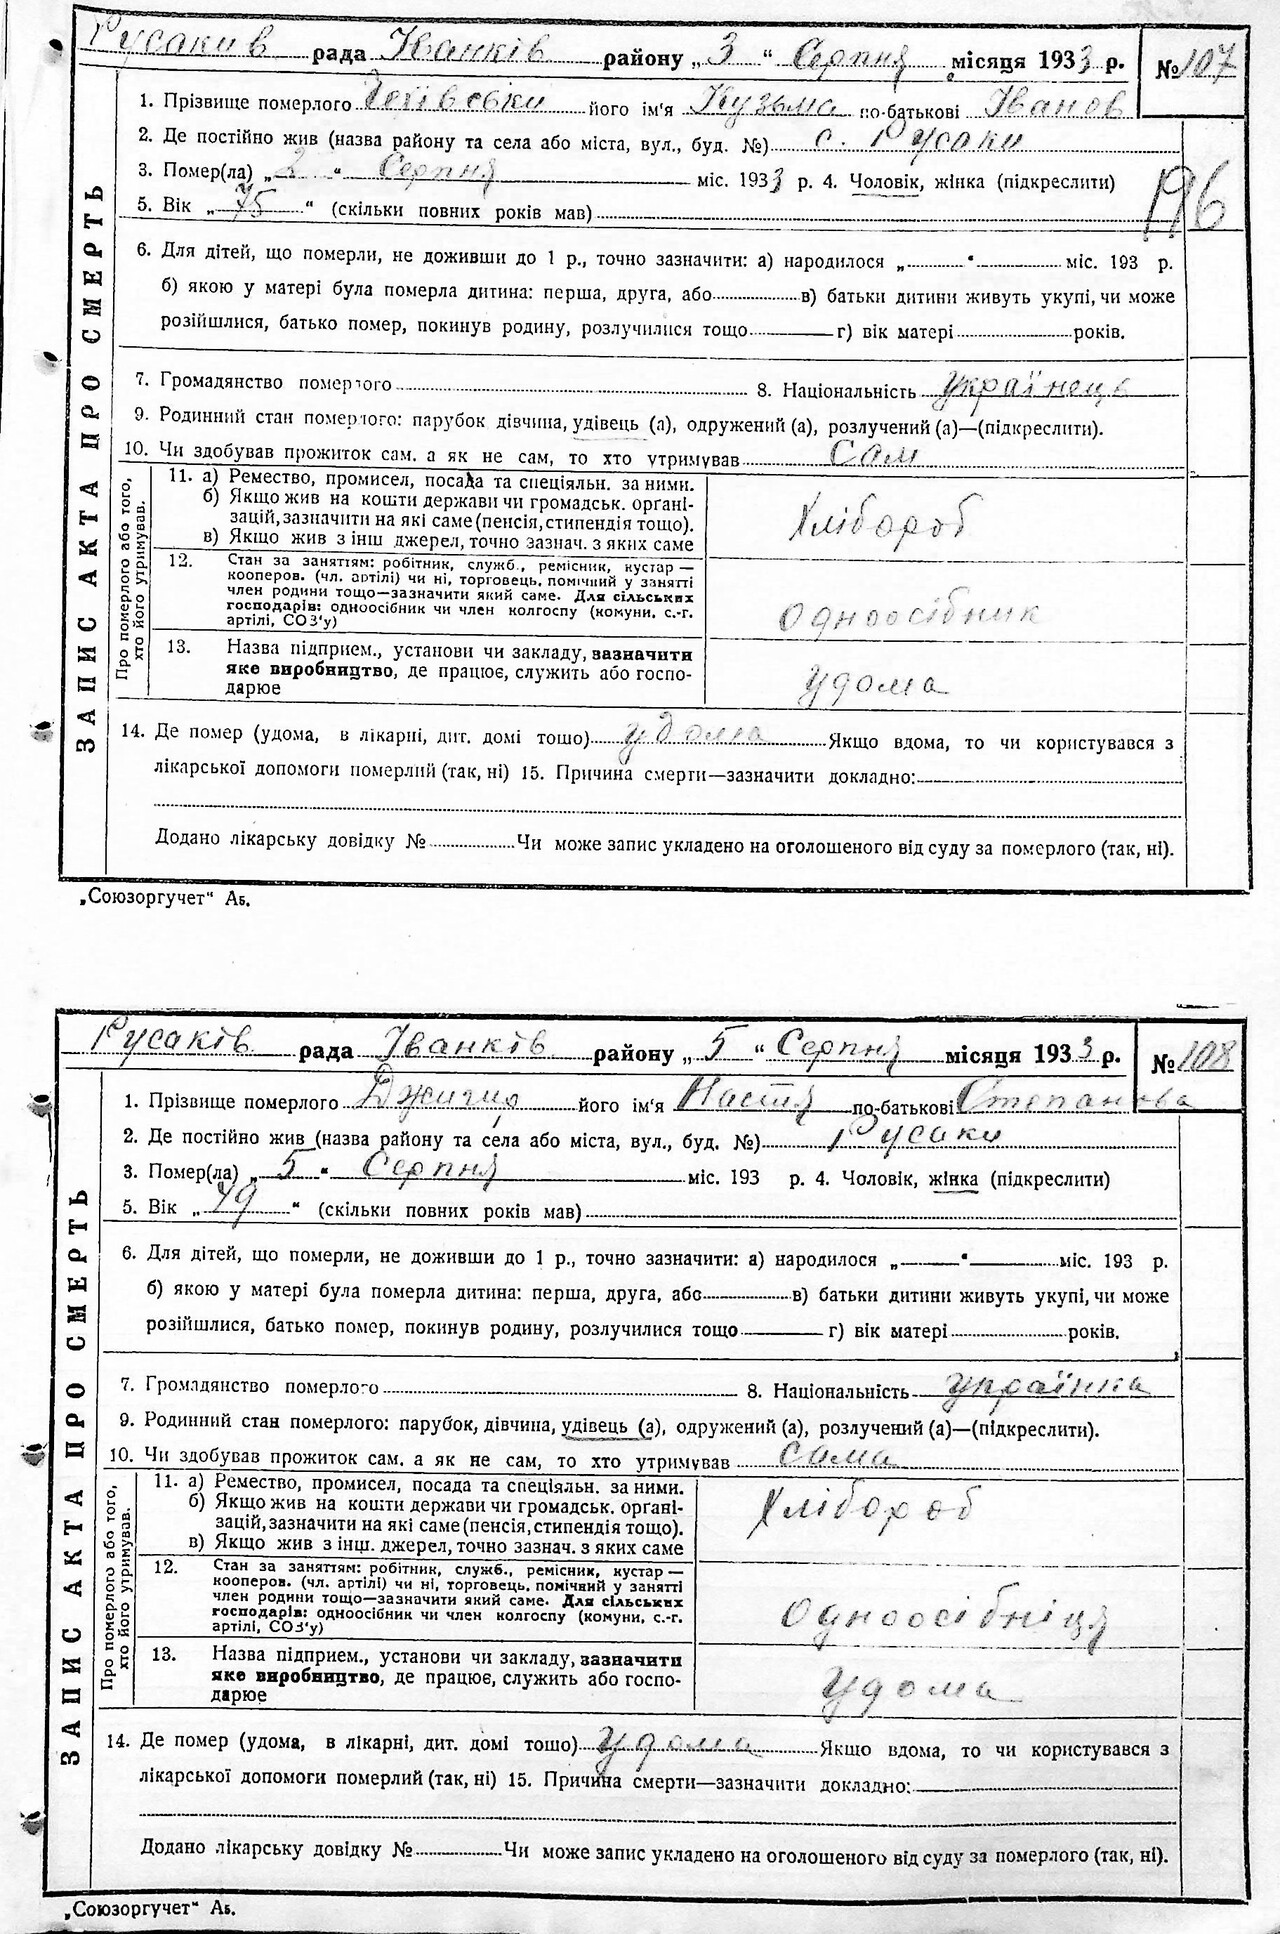 Русакив рада Іванків району „3“ Серпня місяця 1933 р. № 107
1. Прізвище померлого його ім'я Кузьма по-батькові Іванов
2. Де постійно жив (назва району та села або міста, вул., буд. №) с. Русаки
3. Помер(ла) „2“ Серпня міс. 1933 р. 4. Чоловік, жінка (підкреслити)
196
5. Вік „75“ (скільки повних років мав)
6. Для дітей, що померли, не доживши до 1 р., точно зазначити: а) народилося „ “ міс. 193 р.
б) якою у матері була померла дитина: перша, друга, або в) батьки дитини живуть укупі, чи може
розійшлися, батько помер, покинув родину, розлучилися тощо г) вік матері років.
7. Громадянство померлого 8. Національність українець
9. Родинний стан померлого: парубок дівчина, удівець (а), одружений (а), розлучений (а)—(підкреслити).
10. Чи здобував прожиток сам. а як не сам, то хто утримував Сам
ЗАПИС АКТА ПРО СМЕРТЬ
Про померлого або того,
хто його утримував.
11. а) Ремество, промисел, посада та спеціяльн. за ними.
б) Якщо жив на кошти держави чи громадськ. органі-
зацій, зазначити на які саме (пенсія, стипендія тощо).
в) Якщо жив з інш джерел, точно зазнач. з яких саме
Хлібороб
12. Стан за заняттям: робітник, служб., ремісник, кустар —
кооперов. (чл. артілі) чи ні, торговець, помічний у занятті
член родини тощо—зазначити який саме. Для сільських
господарів: одноосібник чи член колгоспу (комуни, с.-г.
артілі, СОЗ'у)
одноосібник
13. Назва підприєм., установи чи закладу, зазначити
яке виробництво, де працює, служить або госпо-
дарює
удома
14. Де помер (удома, в лікарні, дит. домі тошо) удома Якщо вдома, то чи користувався з
лікарської допомоги померлий (так, ні) 15. Причина смерти—зазначити докладно:
Додано лікарську довідку № Чи може запис укладено на оголошеного від суду за померлого (так, ні).
„Союзоргучет“ Аб.
Русаків рада Іванків району „5“ Серпня місяця 1933 р. № 108
1. Прізвище померлого його ім'я Настя по-батькові Степанова
2. Де постійно жив (назва району та села або міста, вул., буд. №) Русаки
3. Помер(ла) „5“ Серпня міс. 193 р. 4. Чоловік, жінка (підкреслити)
5. Вік „79“ (скільки повних років мав)
6. Для дітей, що померли, не доживши до 1 р., точно зазначити: а) народилося „ “ міс. 193 р.
б) якою у матері була померла дитина: перша, друга, або в) батьки дитини живуть укупі, чи може
розійшлися, батько помер, покинув родину, розлучилися тощо г) вік матері років.
7. Громадянство померлого 8. Національність українка
9. Родинний стан померлого: парубок, дівчина, удівець (а), одружений (а), розлучений (а)—(підкреслити).
10. Чи здобував прожиток сам. а як не сам, то хто утримував сама
ЗАПИС АКТА ПРО СМЕРТЬ
Про померлого або того,
хто його утримував.
11. а) Ремество, промисел, посада та спеціяльн. за ними.
б) Якщо жив на кошти держави чи громадськ. органі-
зацій, зазначити на які саме (пенсія, стипендія тощо).
в) Якщо жив з інш. джерел, точно зазнач. з яких саме
Хлібороб
12. Стан за заняттям: робітник, служб., ремісник, кустар —
кооперов. (чл. артілі) чи ні, торговець, помічний у занятті
член родини тощо—зазначити який саме. Для сільських
господарів: одноосібник чи член колгоспу (комуни, с.-г.
артілі, СОЗ'у)
одноосібніця
13. Назва підприєм., установи чи закладу, зазначити
яке виробництво, де працює, служить або госпо-
дарює
удома
14. Де помер (удома, в лікарні, дит. домі тошо) удома Якщо вдома, то чи користувався з
лікарської допомоги померлий (так, ні) 15. Причина смерти—зазначити докладно:
Додано лікарську довідку № Чи може запис укладено на оголошеного від суду за померлого (так, ні).
„Союзоргучет“ Аб.